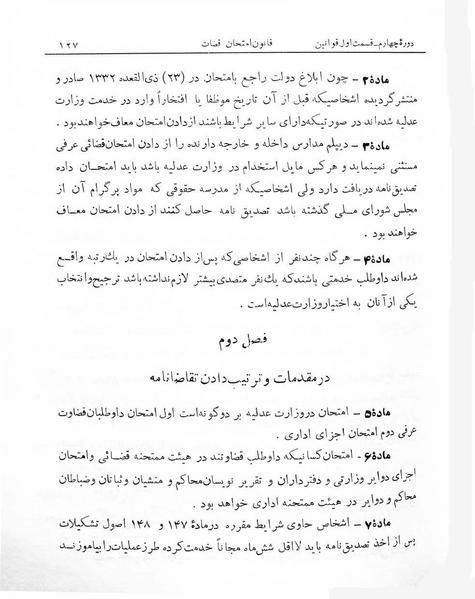 دورهٔ چهارم_قسمت اول قوانین قانون امتحان قضات ۱۲۷
مادهٔ ۲ - چون ابلاغ دولت راجع بامتحان در (۲۳) ذی‌القعده ۱۳۳۲ صادر و
منتشر گردیده اشخاصیکه قبل از آن تاریخ موظفا یا افتخاراً وارد در خدمت وزارت
عدلیه شده‌اند در صورتیکه دارای سایر شرایط باشند از دادن امتحان معاف خواهند بود .
مادهٔ ۳ - دیپلم مدارس داخله و خارجه دارنده را از دادن امتحان قضائی عرفی
مستثنی نمینماید و هر کس مایل استخدام در وزارت عدلیه باشد باید امتحان داده
تصدیق‌نامه دریافت دارد ولی اشخاصیکه از مدرسه حقوقی که مواد پرگرام آن از
مجلس شورای ملی گذشته باشد تصدیق نامه حاصل کنند از دادن امتحان معاف
خواهند بود .
مادهٔ ۴ - هرگاه چند نفر از اشخاصی که پس از دادن امتحان در یك رتبه واقع
شده‌اند داوطلب خدمتی باشند که یك نفر متصدی بیشتر لازم نداشته باشد ترجیح و انتخاب
یکی از آنان به اختیار وزارت عدلیه است .
فصل دوم
در مقدمات و ترتیب دادن تقاضانامه
مادهٔ ۵ - امتحان در وزارت عدلیه بر دو گونه است اول امتحان داوطلبان قضاوت
عرفی دوم امتحان اجزای اداری .
مادهٔ ۶ - امتحان کسانیکه داوطلب قضاوتند در هیئت ممتحنه قضائی و امتحان
اجزای دوایر وزارتی و دفترداران و تقریر نویسان محاکم و منشیان و ثباتان و ضباطان
محاکم و دوایر در هیئت ممتحنه اداری خواهد بود .
مادهٔ ۷ - اشخاص حاوی شرایط مقرره در مادهٔ ۱۴۷ و ۱۴۸ اصول تشکیلات
پس از اخذ تصدیق‌نامه باید لااقل شش ماه مجاناً خدمت کرده طرز عملیات را بیاموزند